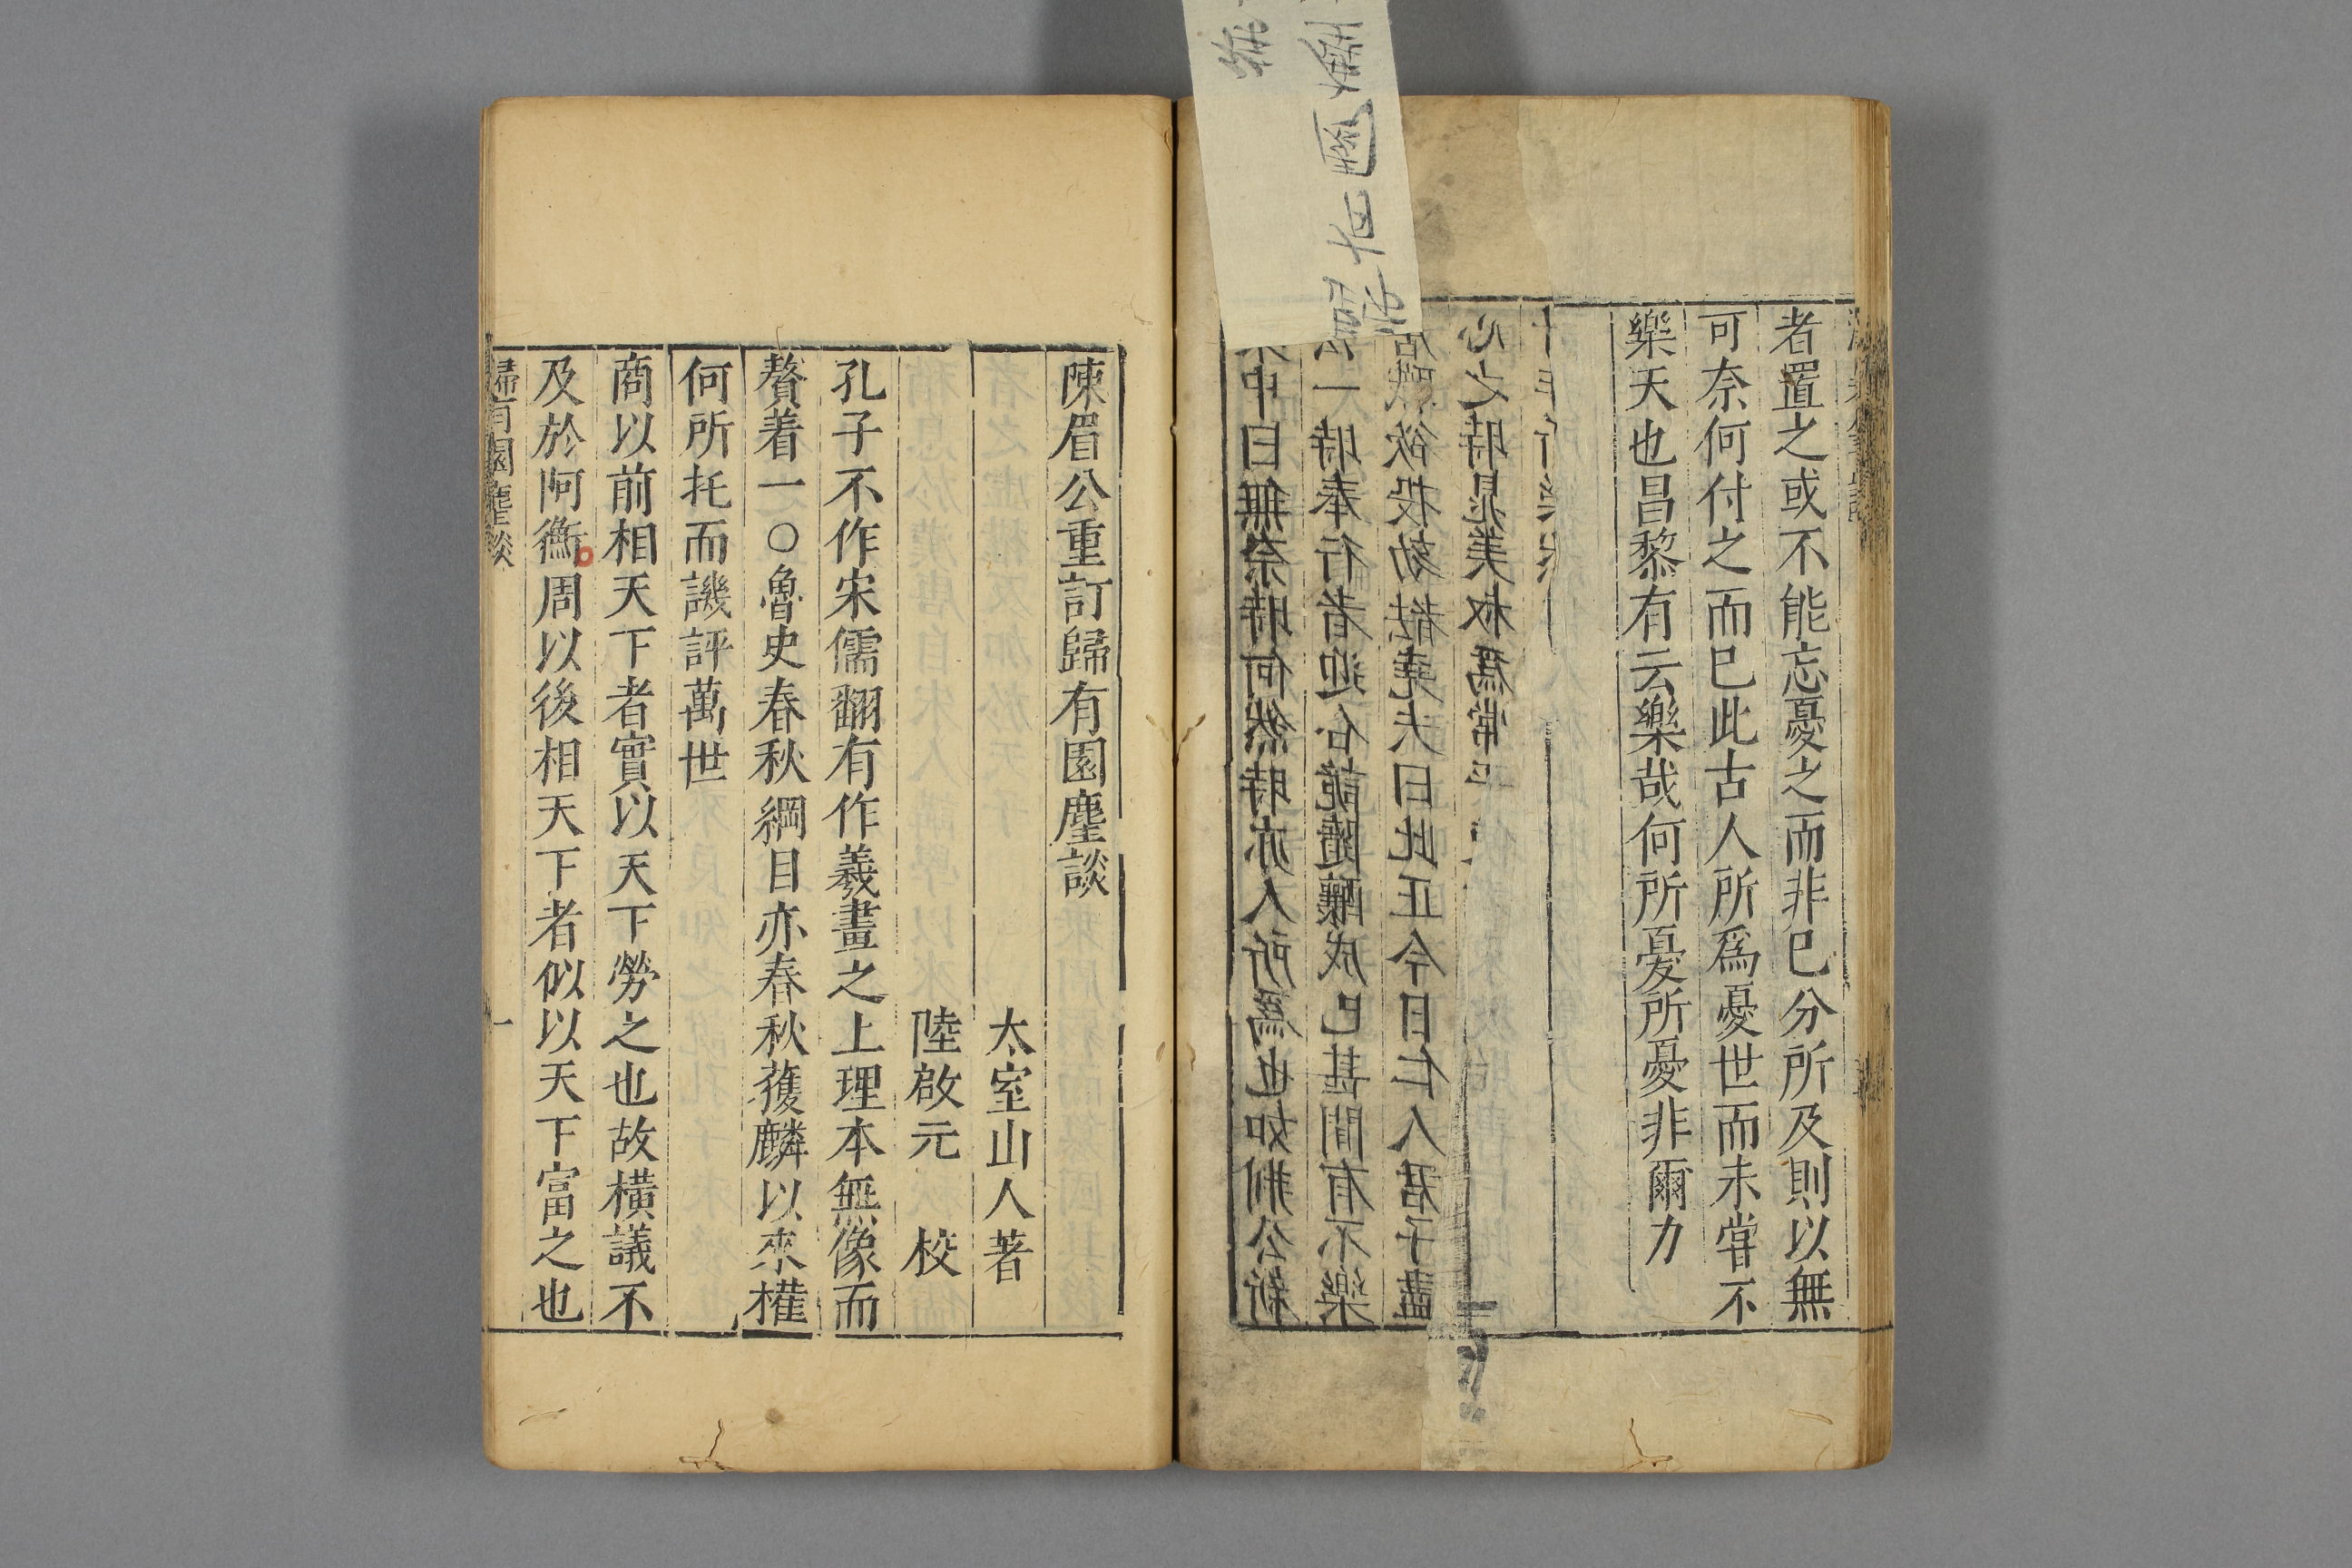 者置之或不能忘憂之而非已分所及則以無
可奈何付之而已此古人所爲憂世而未嘗不
樂天也昌黎有云樂哉何所憂所憂非爾力
心之時晁美叔爲常
欲投劾堯夫曰此正今日仁人君子盡
一時奉行者迎合詭隨釀成已甚間有不樂
中曰無奈時何然時亦人所爲也如荆公新
陳眉公重訂歸有園麈談
太室山人著
陸啟元 校
孔子不作宋儒翻有作羲畫之上理本無像而
贅着一〇魯史春秋綱目亦春秋獲麟以來權
何所托而譏評萬世
商以前相天下者實以天下勞之也故橫議不
及於阿衡周以後相天下者似以天下富之也
歸有園麈談
一